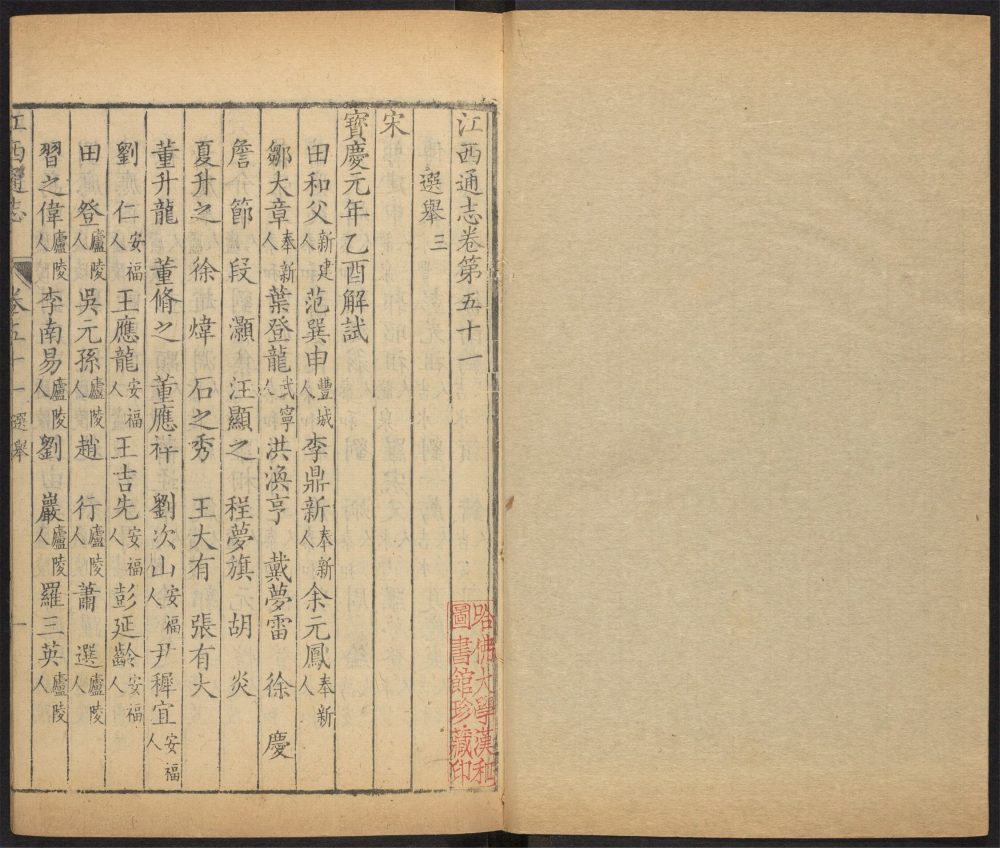 江西通志卷第五十一
選舉三
宋
寶慶元年乙酉解試
田和父新建人 范巽申豐城人 李鼎新奉新人 余元鳳奉新人
鄒大章奉新人 葉登龍武寧人 洪渙亨 戴夢雷 徐慶
詹節 段灝 汪顯之 程夢旗 元胡炎
夏升之 徐煒 石之秀 王大有 張有大
董升龍 董脩之 董應祥 劉次山安福人 尹穉宜安福人
劉應仁安福人 王應龍安福人 王吉先安福人 彭延齡安福人
田登廬陵人 吳元孫廬陵人 趙行廬陵人 蕭選廬陵人
習之偉廬陵人 李南易廬陵人 劉巖廬陵人 羅三英廬陵人
江西通志 卷五十一 選舉 一
哈佛大學漢和
圖書館珍藏印